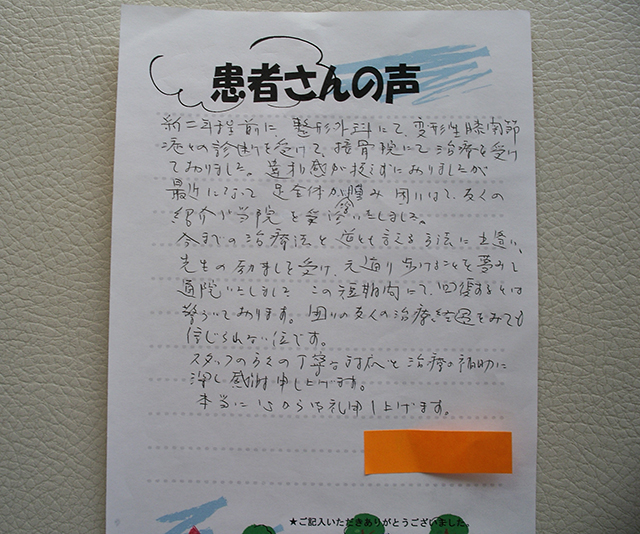 患者さんの声
二年程前に、整形外科にて、変形性膝関節
症との診断を受けて、接骨院にて治療を受け
ておりました。違和感が抜けずにおりましたが
最近になって足全体が痛み困りはて、友人の
紹介で当院を受診いたしました。
今までの治療法と真逆とも言える方法に出逢い、
先生の励ましを受け、元通り歩けることを夢みて
通院いたしました この短期間にて回復するとは
驚いております。周りの友人の治療結果をみても
信じられない位です。
スタッフの方々の丁寧な対応と治療の補助に
深く感謝申し上げます。
本当に心から御礼申し上げます。
★ご記入いただきありがとうございました。